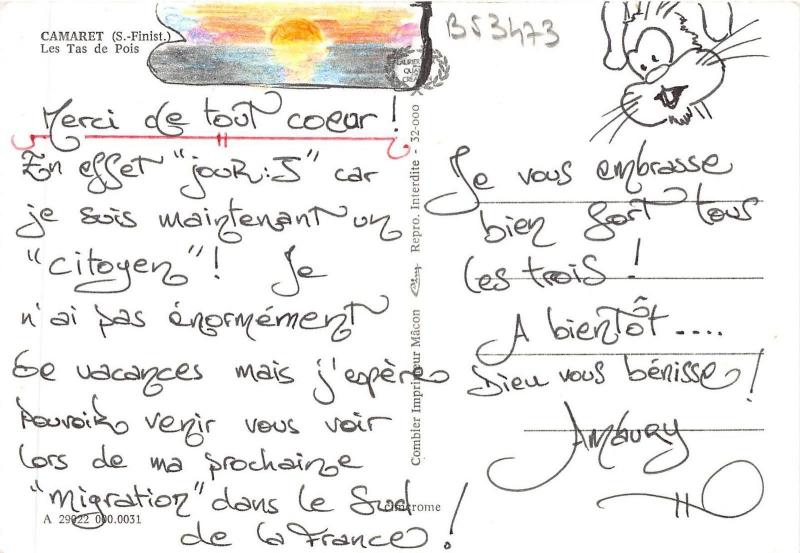 CAMARET (S.-Finist.)
Les Tas de Pois
B53473
Merci de tout coeur !
En effet "jouR:J" car
je suis maintenant un
"citoyen" ! Je
n'ai pas énormément
de vacances mais j'espère
pouvoir venir vous voir
lors de ma prochaine
"migration" dans le Sud
de la France !
A 29022 000.0031
Combier Imprimeur Mâcon
Repro. Interdite - 32-000
Je vous embrasse
bien fort tous
les trois !
A bientôt ....
Dieu vous bénisse !
Amaury